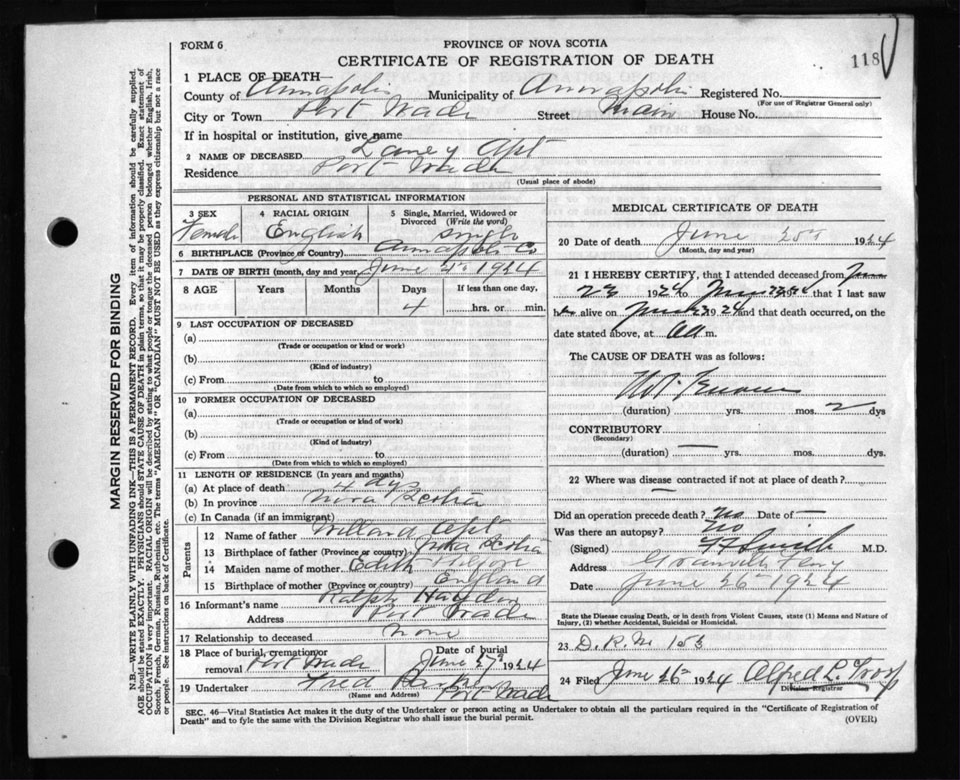 FORM 6
PROVINCE OF NOVA SCOTIA
CERTIFICATE OF REGISTRATION OF DEATH
118
1 PLACE OF DEATH—
County of Annapolis Municipality of Annapolis Registered No.
(For use of Registrar General only)
City or Town Port Wade Street Main House No.
If in hospital or institution, give name
2 NAME OF DECEASED Laney Apt
Residence Port Wade
(Usual place of abode)
PERSONAL AND STATISTICAL INFORMATION
3 SEX
Female
4 RACIAL ORIGIN
English
5 Single, Married, Widowed or Divorced (Write the word)
Single
6 BIRTHPLACE (Province or Country) Annapolis Co
7 DATE OF BIRTH (month, day and year) June 1924
8 AGE Years Months Days If less than one day,
4 hrs. or min.
9 LAST OCCUPATION OF DECEASED
(a)
(Trade or occupation or kind or work)
(b)
(Kind of industry)
(c) From to
(Date from which to which so employed)
10 FORMER OCCUPATION OF DECEASED
(a)
(Trade or occupation or kind of work)
(b)
(Kind of industry)
(c) From to
(Date from which to which so employed)
11 LENGTH OF RESIDENCE (In years and months)
(a) At place of death 4 dys
(b) In province Nova Scotia
(c) In Canada (if an immigrant)
Parents
12 Name of father Willard Apt
13 Birthplace of father (Province or country) Nova Scotia
14 Maiden name of mother Edith
15 Birthplace of mother (Province or country) England
16 Informant's name Ralph Haydon
Address Port Wade
17 Relationship to deceased none
18 Place of burial, cremation or removal Port Wade
Date of burial
June 27th 1924
19 Undertaker Fred Port Wade
(Name and Address)
MEDICAL CERTIFICATE OF DEATH
20 Date of death June 25th 1924
(Month, day and year)
21 I HEREBY CERTIFY, that I attended deceased from June
1924 to that I last saw
alive on 1924 and that death occurred, on
date stated above, at m.
The CAUSE OF DEATH was as follows:
(duration) yrs. mos. 2 dys
CONTRIBUTORY
(Secondary)
(duration) — yrs. mos. dys
22 Where was disease contracted if not at place of death?
Did an operation precede death? No Date of —
Was there an autopsy? No
(Signed) Smith M.D.
Address Granville Ferry
Date June 26th 1924
State the Disease causing Death, or in death from Violent Causes, state (1) Means and Nature of Injury, (2) whether Accidental, Suicidal or Homicidal.
23 D.R.M. 153
24 Filed June 26th 1924 Alfred L.
Division Registrar
SEC. 46—Vital Statistics Act makes it the duty of the Undertaker or person acting as Undertaker to obtain all the particulars required in the "Certificate of Registration of
Death" and to fyle the same with the Division Registrar who shall issue the burial permit.
(OVER)
MARGIN RESERVED FOR BINDING
N.B.—WRITE PLAINLY WITH UNFADING INK—THIS IS A PERMANENT RECORD. Every item of information should be carefully supplied.
AGE should be stated EXACTLY. PHYSICIANS should STATE CAUSE OF DEATH in plain terms, so that it may be properly classified. Exact statement of
OCCUPATION is very important. RACIAL ORIGIN will be described by stating to what people or tongue the deceased person belonged whether English, Irish,
Scotch, French, German, Russian, Ruthenian, etc. The terms "AMERICAN" OR "CANADIAN" MUST NOT BE USED as they express citizenship but not a race
or people. See instructions on back of Certificate.